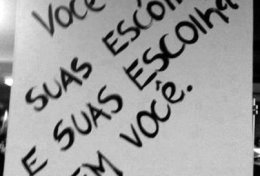 VOCÊ
SUAS ESCOLH
E SUAS ESCOLHA
EM VOCÊ.